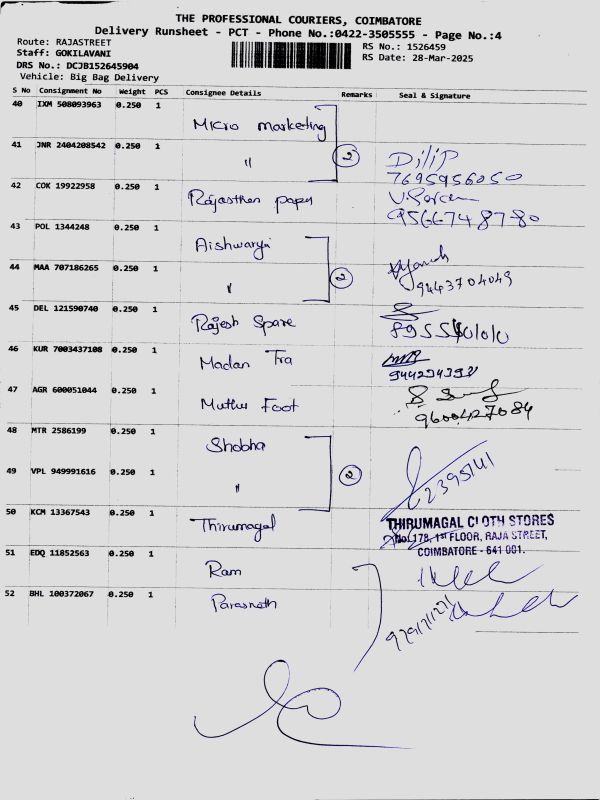 THE PROFESSIONAL COURIERS, COIMBATORE
Delivery Runsheet - PCT - Phone No.:0422-3505555 - Page No.:4
Route: RAJASTREET
Staff: GOKILAVANI
DRS No.: DCJB152645904
Vehicle: Big Bag Delivery
RS No.: 1526459
RS Date: 28-Mar-2025
S No Consignment No Weight PCS Consignee Details Remarks Seal & Signature
40 IXM 508093963 0.250 1 Micro marketing
41 JNR 2404208542 0.250 1 " 2 Dilip
7695956050
42 COK 19922958 0.250 1 Rajasthan paper
9566748780
43 POL 1344248 0.250 1 Aishwarya
44 MAA 707186265 0.250 1 " 2
9443704049
45 DEL 121590740 0.250 1 Rajesh Spare
46 KUR 7003437108 0.250 1 Madan Tra
47 AGR 600051044 0.250 1 Muthu Foot
9600427084
48 MTR 2586199 0.250 1 Shobha
49 VPL 949991616 0.250 1 " 2
2395141
50 KCM 13367543 0.250 1 Thirumagal
THIRUMAGAL CLOTH STORES
No.178, 1st FLOOR, RAJA STREET,
COIMBATORE - 641 001.
51 EDQ 11852563 0.250 1 Ram
52 BHL 100372067 0.250 1 Parasnath